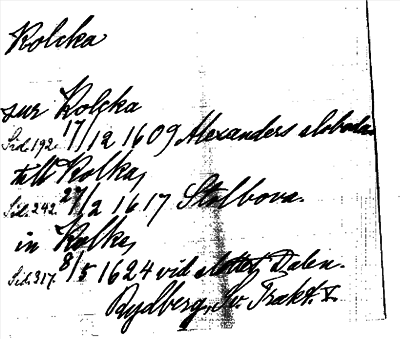 Kolcka
sur Kolcka
Sid. 192. 17/12 1609 Alexanders sloboda
till Kolka,
Sid. 242. 27/2 1617 Stolbova.
in Kolka,
Sid. 317. 8/5 1624 vid slottet Dalen.
Rydberg, Sv. Trakt. V.